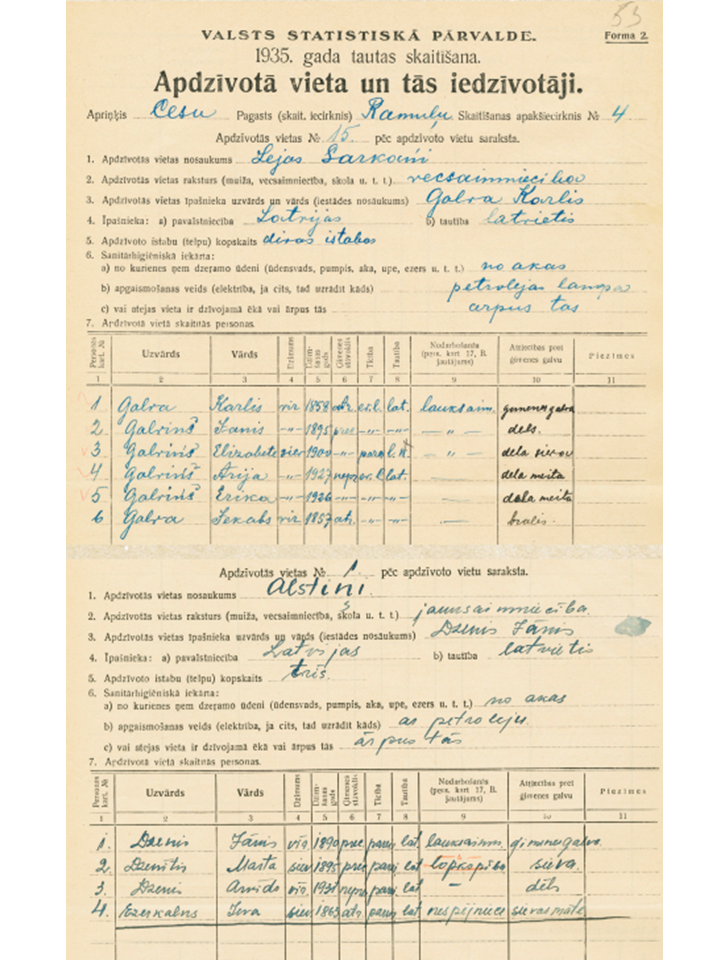 53
VALSTS STATISTISKĀ PĀRVALDE.
Forma 2.
1935. gada tautas skaitīšana.
Apdzīvotā vieta un tās iedzīvotāji.
Apriņķis Cēsu Pagasts (skait. iecirknis) Ramuļu Skaitīšanas apakšiecirknis № 4
Apdzīvotās vietas № 15. pēc apdzīvoto vietu saraksta.
1. Apdzīvotās vietas nosaukums Lejas Sarkaņi
2. Apdzīvotās vietas raksturs (muiža, vecsaimniecība, skola u. t. t.) vecsaimniecība
3. Apdzīvotās vietas īpašnieka uzvārds un vārds (iestādes nosaukums) Galva Karlis
4. Īpašnieka: a) pavalstniecība Latvijas b) tautība latvietis
5. Apdzīvoto istabu (telpu) kopskaits divas istabas
6. Sanitārhigiēniskā iekārta:
a) no kurienes ņem dzeramo ūdeni (ūdensvads, pumpis, aka, upe, ezers u. t. t.) no akas
b) apgaismošanas veids (elektrība, ja cits, tad uzrādīt kāds) petrolejas lampa
c) vai atejas vieta ir dzīvojamā ēkā vai ārpus tās arpus tas
7. Apdzīvotā vietā skaitītās personas.
Personas kart. № Uzvārds Vārds Dzimums Dzimšanas gads Ģimenes stāvoklis Ticība Tautība Nodarbošanās (pers. kart 17. B. jautājums) Attiecības pret ģimenes galvu Piezīmes
1 2 3 4 5 6 7 8 9 10 11
1 Galva Karlis vir 1858 atr. ev.l. lat. lauksaim. gimenes galva
2 Galviņš Janis -"- 1895 prec -"- -"- -"- dels.
3 Galviņš Elizabete siev 1900 -"- pareiz -"- dela sieva
4 Galviņš Arija -"- 1927 nepr ev. l. lat. — dela meita
5 Galviņš Erika -"- 1926 -"- -"- -"- — dela meita
6 Galva Jekabs vir. 1857 atr. -"- -"- — bralis.
Apdzīvotās vietas № 1. pēc apdzīvoto vietu saraksta.
1. Apdzīvotās vietas nosaukums Alstiņi.
2. Apdzīvotās vietas raksturs (muiža, vecsaimniecība, skola u. t. t.) jaunsaimniecība.
3. Apdzīvotās vietas īpašnieka uzvārds un vārds (iestādes nosaukums) Dzenis Jānis
4. Īpašnieka: a) pavalstniecība Latvijas b) tautība latvietis
5. Apdzīvoto istabu (telpu) kopskaits trīs.
6. Sanitārhigiēniskā iekārta:
a) no kurienes ņem dzeramo ūdeni (ūdensvads, pumpis, aka, upe, ezers u. t. t.) no akas
b) apgaismošanas veids (elektrība, ja cits, tad uzrādīt kāds) ar petroleju
c) vai atejas vieta ir dzīvojamā ēkā vai ārpus tās ārpus tās
7. Apdzīvotā vietā skaitītās personas.
Personas kart. № Uzvārds Vārds Dzimums Dzimšanas gads Ģimenes stāvoklis Ticība Tautība Nodarbošanās (pers. kart 17. B. jautājums) Attiecības pret ģimenes galvu Piezīmes
1 2 3 4 5 6 7 8 9 10 11
1. Dzenis Jānis vīr. 1890 prec pareiz lat. lauksaimn. ģimenes galva.
2. Dzenītis Marta siev 1895 prec pareiz lat lopkopība sieva.
3. Dzenis Arvīds vīr. 1931 nepr. pareiz lat — dēls
4. Ezerkalns Ieva siev 1863 atr. pareiz lat nespējniece sievas māte